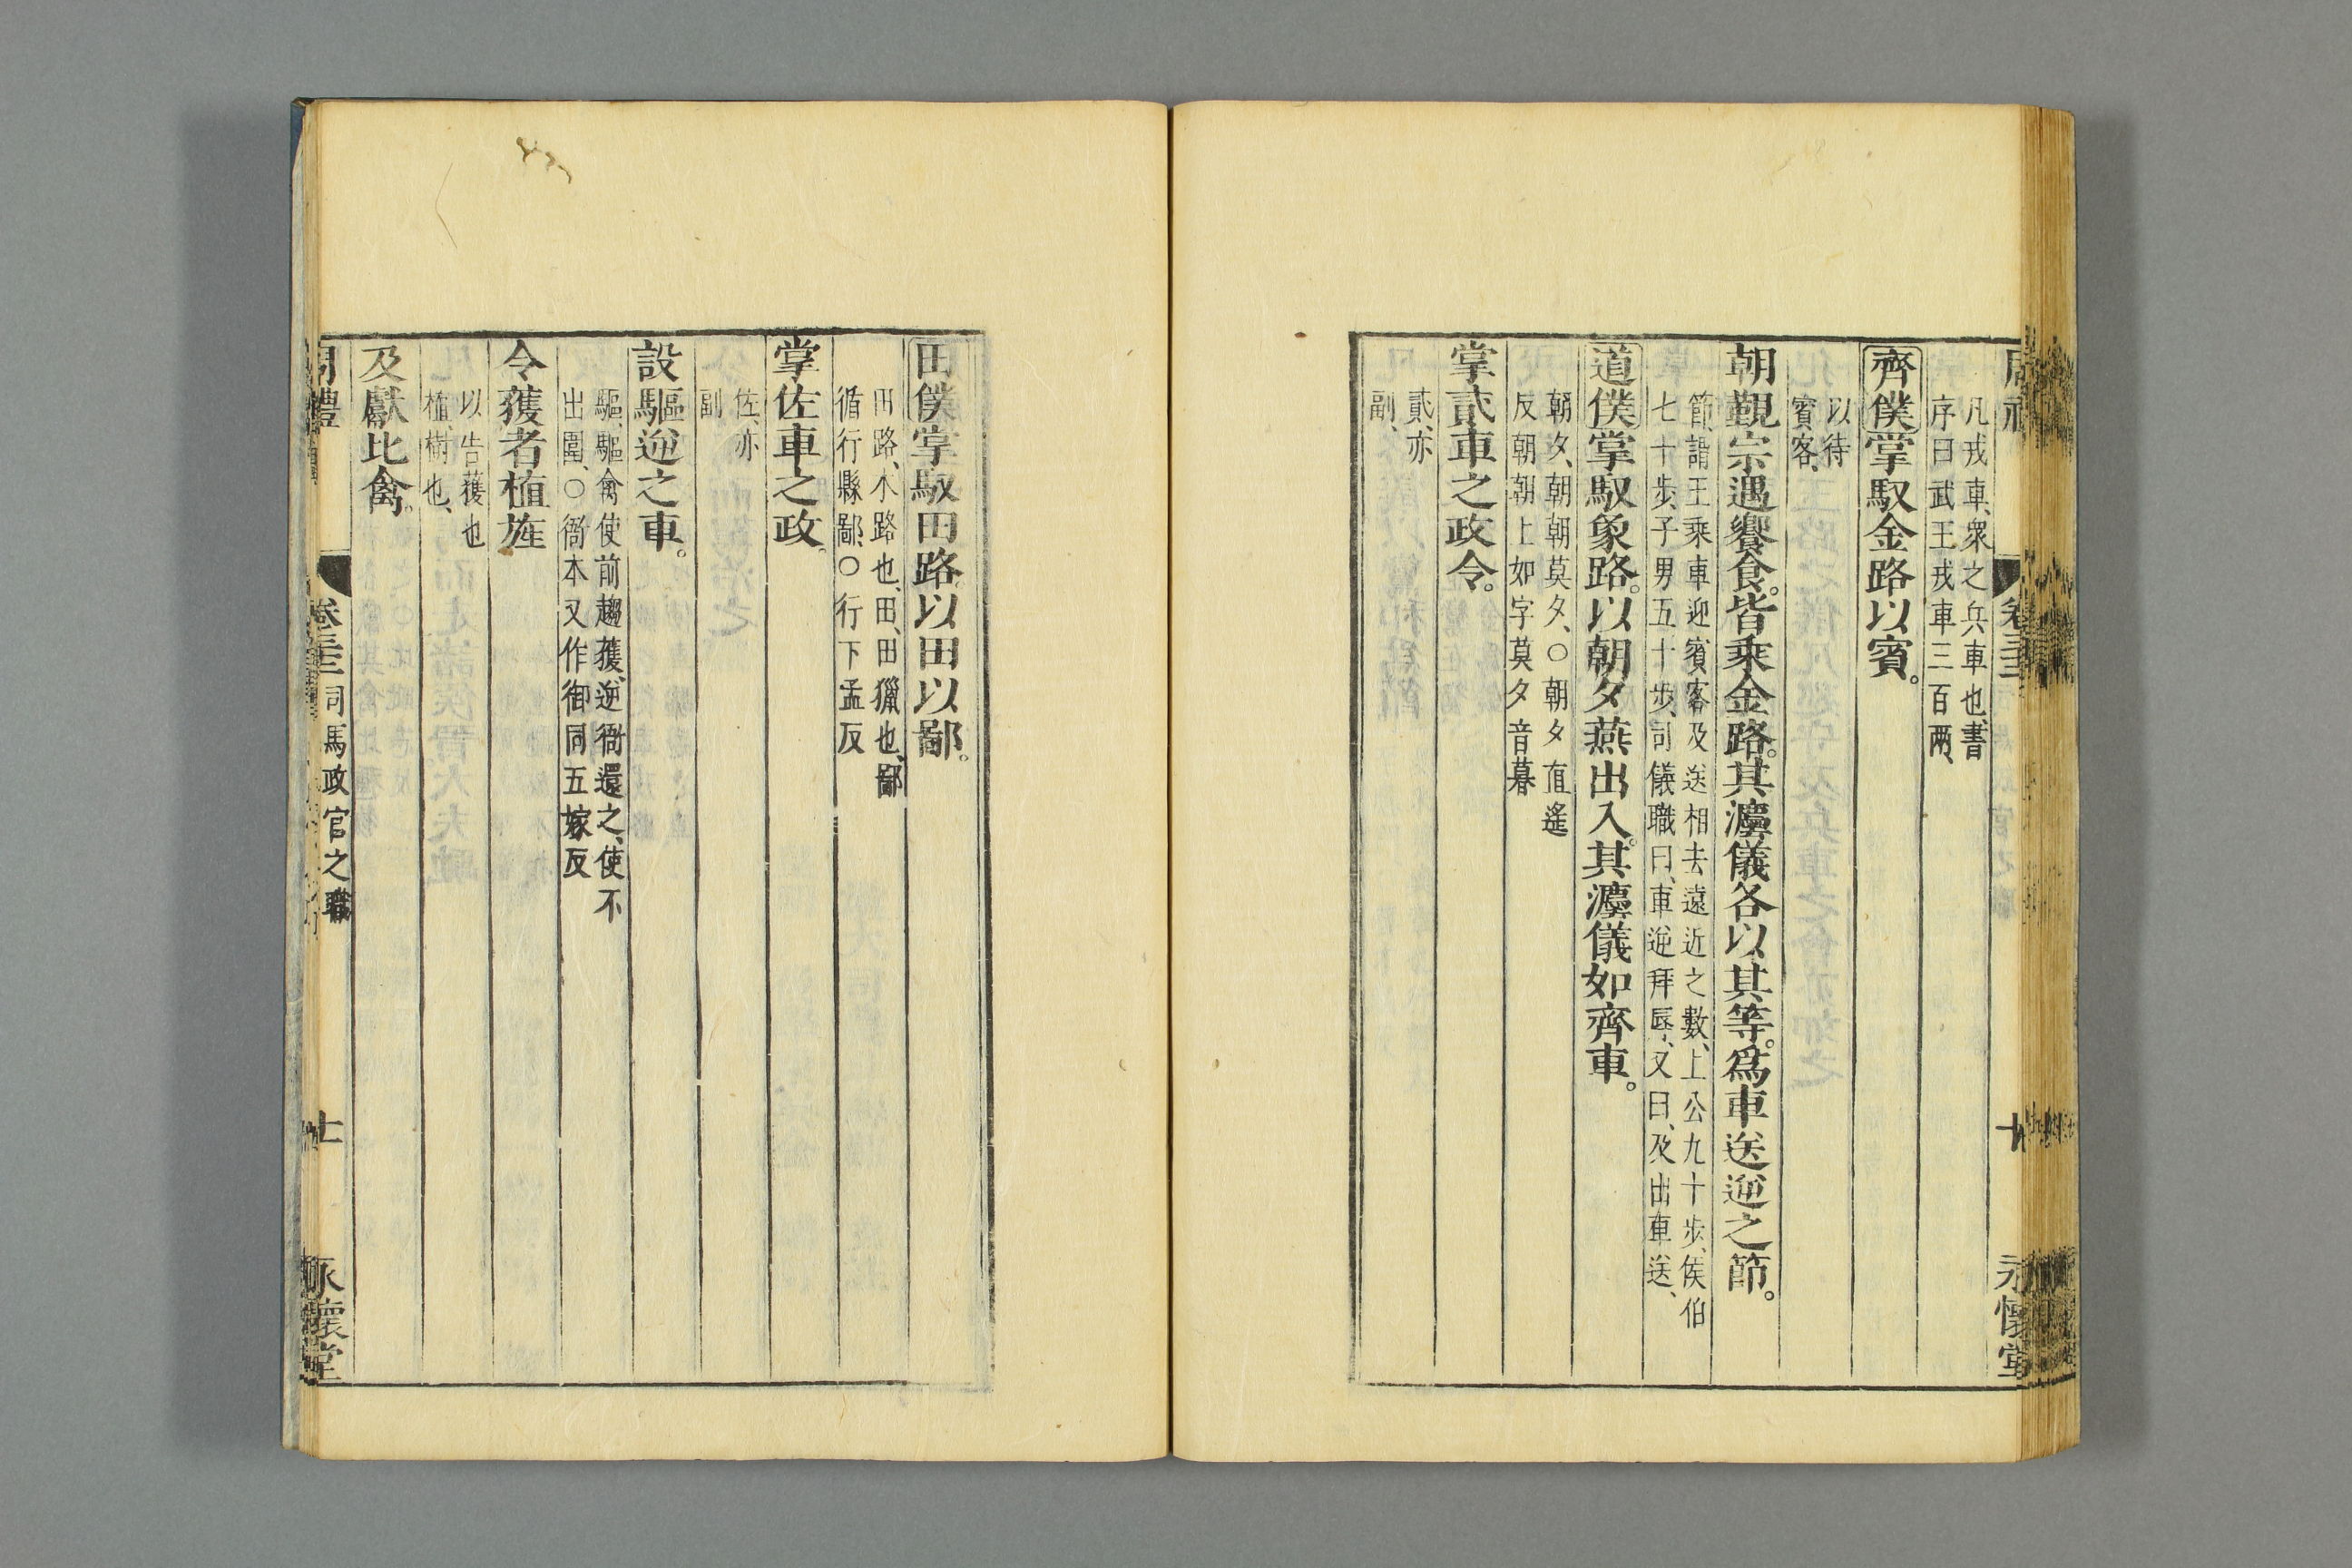 凡戎車、衆之兵車也、書
序曰武王戎車三百兩、
齊僕掌馭金路以賓。
以待
賓客、
朝覲宗遇饗食。皆乘金路。其灋儀各以其等。爲車送逆之節。
節、謂王乘車迎賓客及送相去遠近之數、上公九十步、侯伯
七十步、子男五十步、司儀職曰、車逆拜辱、又曰、及出車送、
道僕掌馭象路。以朝夕燕出入。其灋儀如齊車。
朝夕、朝朝莫夕、○朝夕直遙
反朝朝上如字莫夕音暮
掌貳車之政令。
貳、亦
副、
永懷堂
田僕掌馭田路。以田以鄙。
田路、木路也、田、田獵也、鄙
循行縣鄙、○行下孟反
掌佐車之政。
佐、亦
副
設驅逆之車。
驅、驅禽使前趨獲、逆衙還之、使不
出圍、○衙本又作御同五嫁反
令獲者植旌
以告獲也
植、樹也、
及獻比禽。
周禮 卷三十三 司馬政官之職 十一 永懷堂